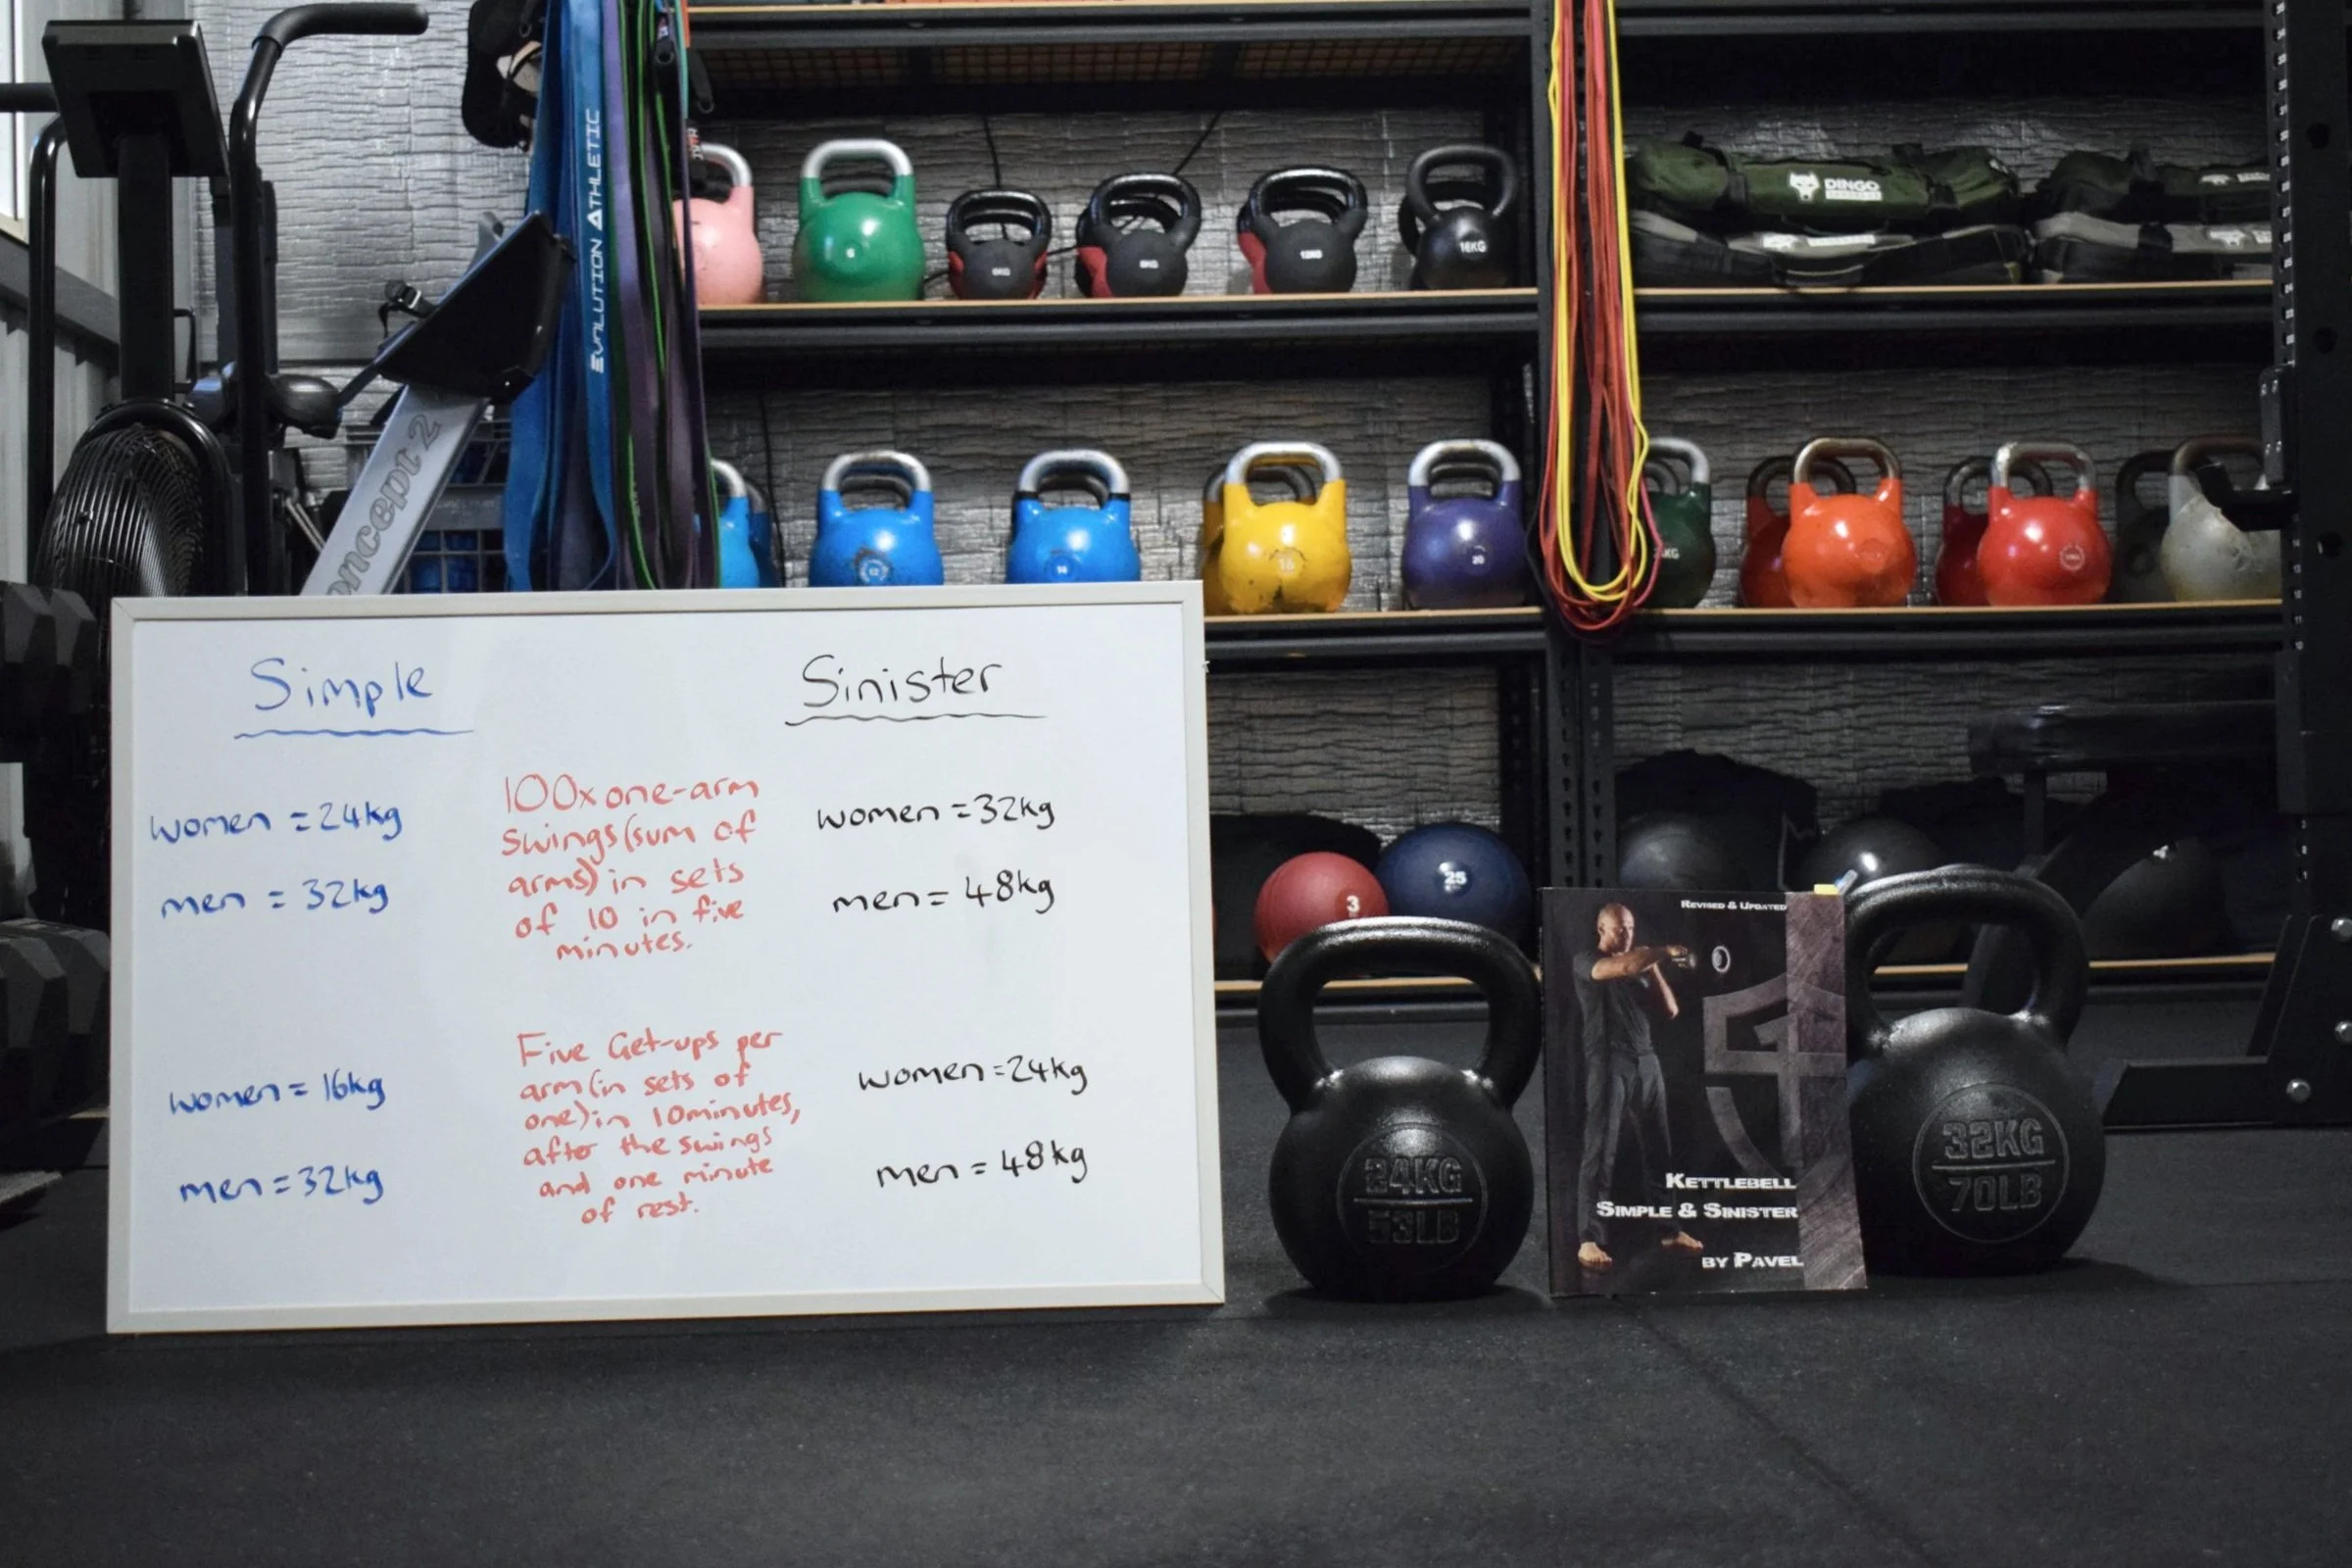 EVOLUTION ATHLETIC
DINGO
6
6KG
8KG
12KG
16KG
oncept 2
12
14
16
20
KG
Simple
women = 24kg
men = 32kg
100x one-arm
swings (sum of
arms) in sets
of 10 in five
minutes.
Sinister
women = 32kg
men = 48kg
women = 16kg
men = 32kg
Five Get-ups per
arm (in sets of
one) in 10 minutes,
after the swings
and one minute
of rest.
women = 24kg
men = 48kg
3
25
24KG
53LB
REVISED & UPDATED
KETTLEBELL
SIMPLE & SINISTER
BY PAVEL
32KG
70LB